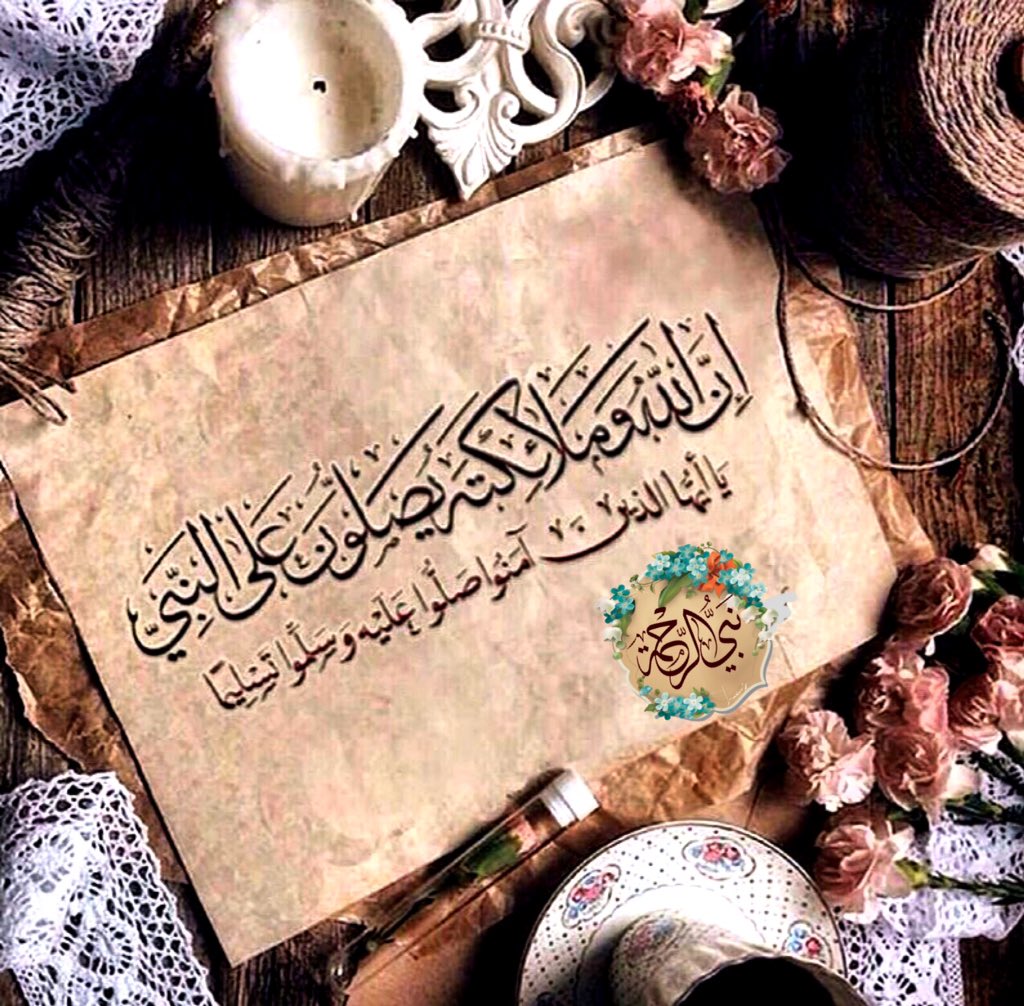 إِنَّ اللَّهَ وَمَلَائِكَتَهُ يُصَلُّونَ عَلَى النَّبِيِّ
يَا أَيُّهَا الذِينَ آمَنُوا صَلُّوا عَلَيْهِ وَسَلِّمُوا تَسْلِيمًا
نَبِيُّ الرَّحْمَة